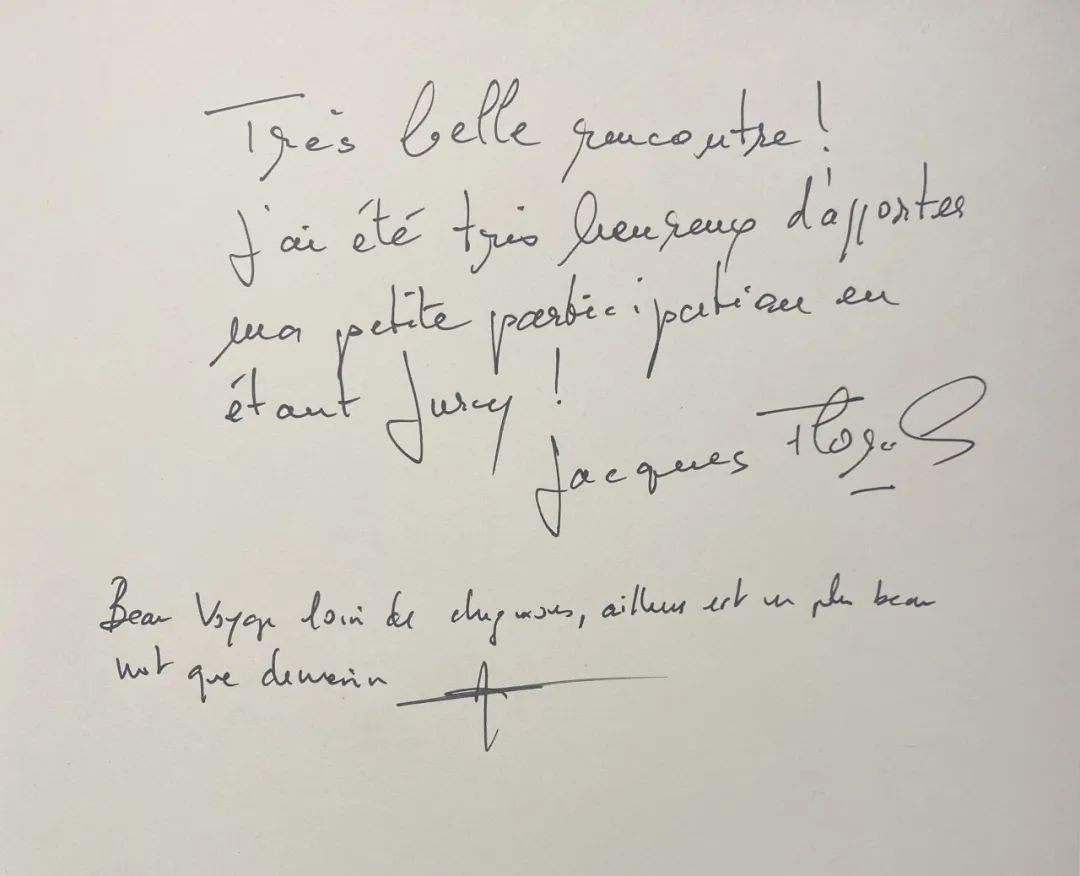 Très belle rencontre !
J'ai été très heureux d'apporter
ma petite participation en
étant Jury !
Jacques
Beau Voyage loin de chez nous, ailleurs est un plus beau
mot que demain